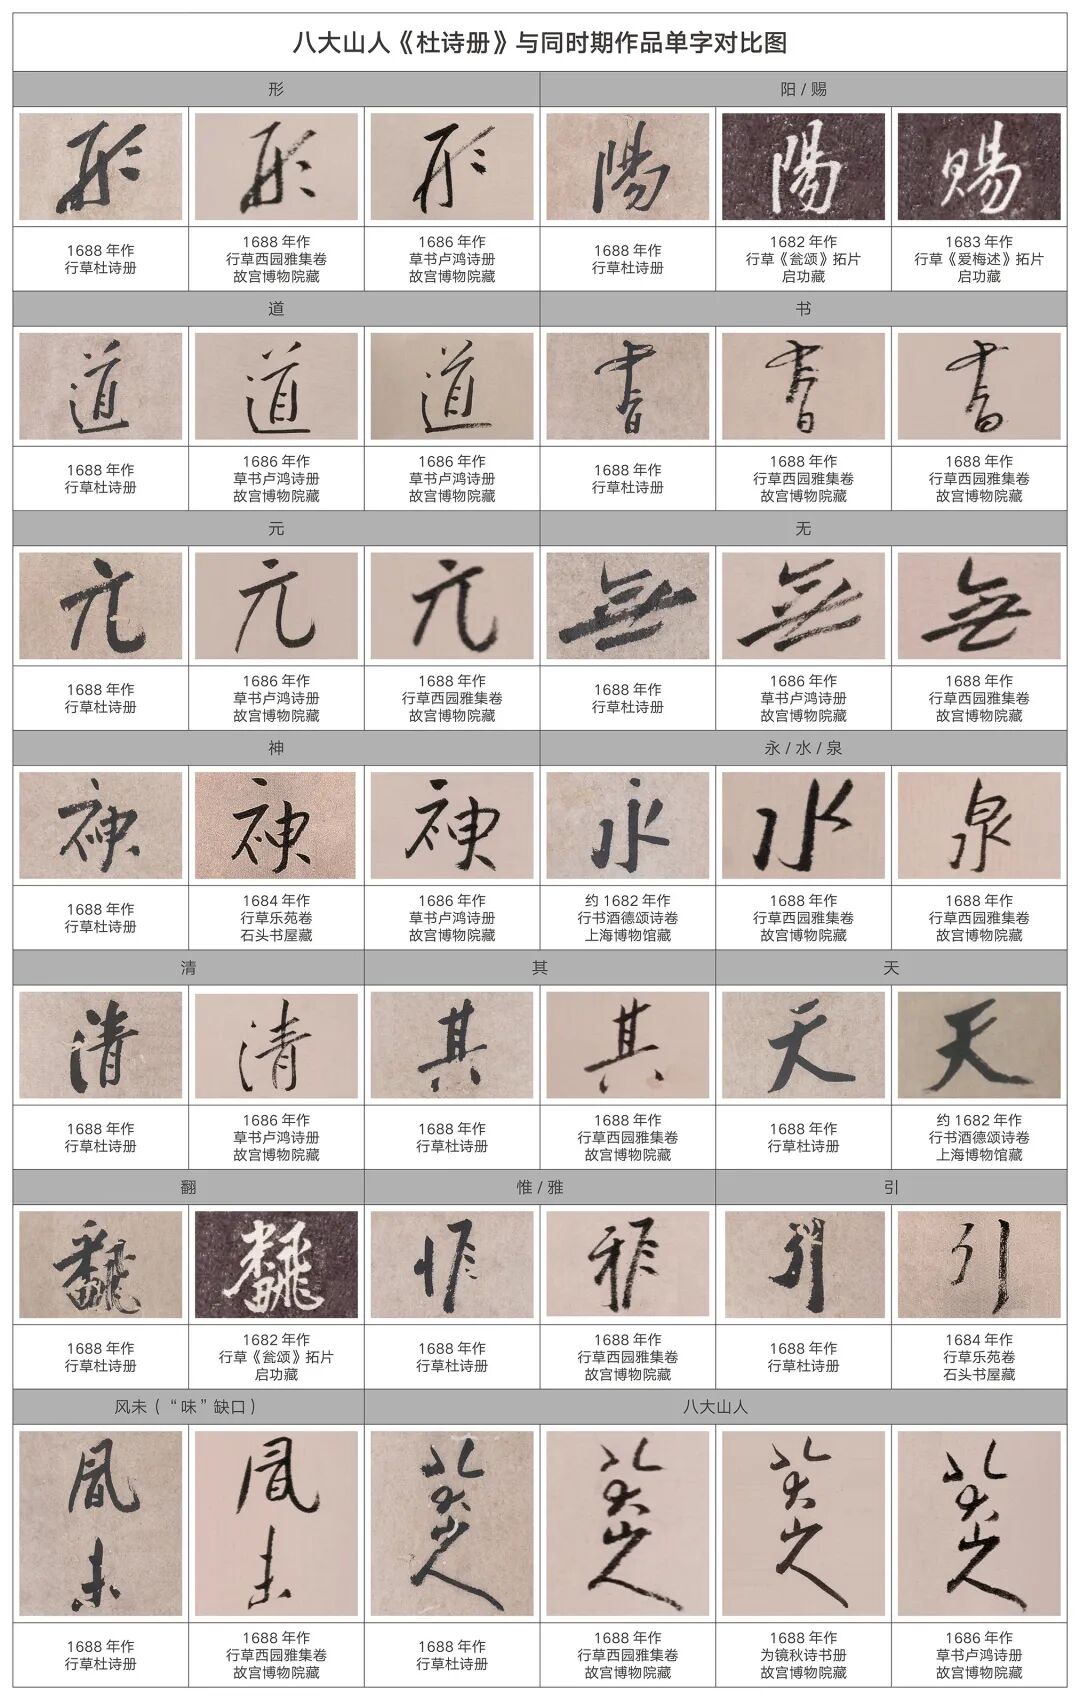 八大山人《杜诗册》与同时期作品单字对比图
形
阳 / 赐
形
形
形
陽
陽
賜
1688 年作
行草杜诗册
1688 年作
行草西园雅集卷
故宫博物院藏
1686 年作
草书卢鸿诗册
故宫博物院藏
1688 年作
行草杜诗册
1682 年作
行草《瓮颂》拓片
启功藏
1683 年作
行草《爱梅述》拓片
启功藏
道
书
道
道
道
書
書
書
1688 年作
行草杜诗册
1686 年作
草书卢鸿诗册
故宫博物院藏
1686 年作
草书卢鸿诗册
故宫博物院藏
1688 年作
行草杜诗册
1688 年作
行草西园雅集卷
故宫博物院藏
1688 年作
行草西园雅集卷
故宫博物院藏
元
无
元
元
元
無
無
無
1688 年作
行草杜诗册
1686 年作
草书卢鸿诗册
故宫博物院藏
1688 年作
行草西园雅集卷
故宫博物院藏
1688 年作
行草杜诗册
1686 年作
草书卢鸿诗册
故宫博物院藏
1688 年作
行草西园雅集卷
故宫博物院藏
神
永 / 水 / 泉
神
神
神
永
水
泉
1688 年作
行草杜诗册
1684 年作
行草乐苑卷
石头书屋藏
1686 年作
草书卢鸿诗册
故宫博物院藏
约 1682 年作
行书酒德颂诗卷
上海博物馆藏
1688 年作
行草西园雅集卷
故宫博物院藏
1688 年作
行草西园雅集卷
故宫博物院藏
清
其
天
清
清
其
其
天
天
1688 年作
行草杜诗册
1686 年作
草书卢鸿诗册
故宫博物院藏
1688 年作
行草杜诗册
1688 年作
行草西园雅集卷
故宫博物院藏
1688 年作
行草杜诗册
约 1682 年作
行书酒德颂诗卷
上海博物馆藏
翻
惟 / 雅
引
飜
飜
惟
雅
引
引
1688 年作
行草杜诗册
1682 年作
行草《瓮颂》拓片
启功藏
1688 年作
行草杜诗册
1688 年作
行草西园雅集卷
故宫博物院藏
1688 年作
行草杜诗册
1684 年作
行草乐苑卷
石头书屋藏
风未（“味”缺口）
八大山人
風未
風未
八大山人
八大山人
八大山人
八大山人
1688 年作
行草杜诗册
1688 年作
行草西园雅集卷
故宫博物院藏
1688 年作
行草杜诗册
1688 年作
行草西园雅集卷
故宫博物院藏
1688 年作
为镜秋诗书册
故宫博物院藏
1686 年作
草书卢鸿诗册
故宫博物院藏